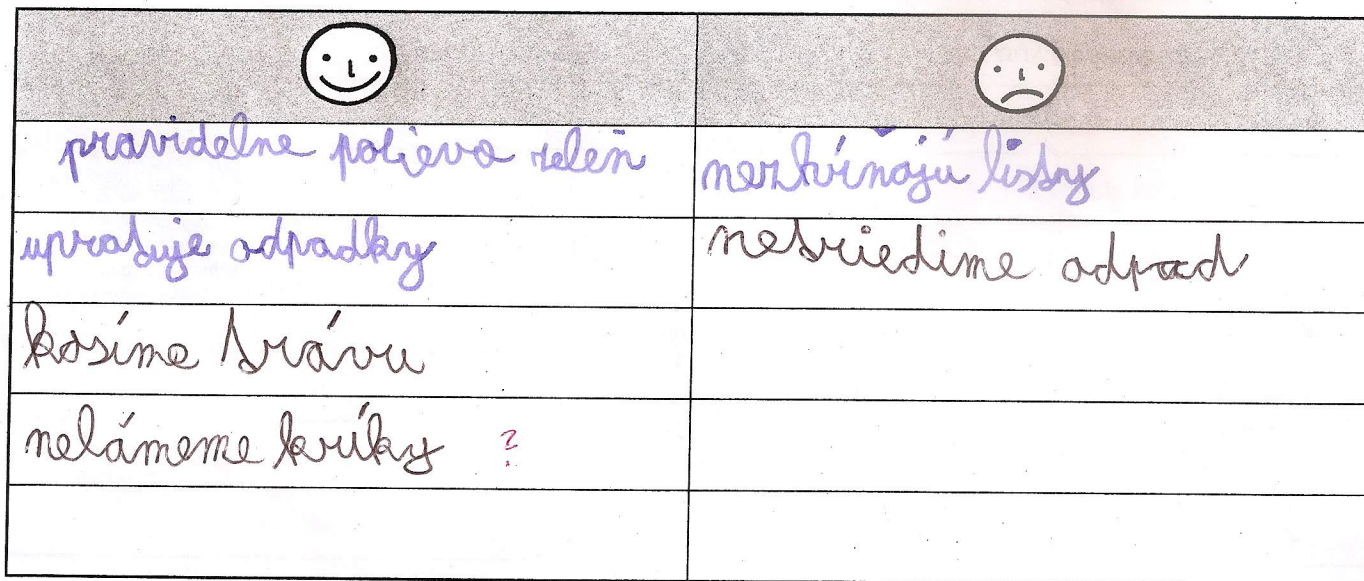 pravidelne polieva zeleň
nezhŕňajú listy
upratuje odpadky
netriedime odpad
kosíme trávu
nelámeme kríky ?